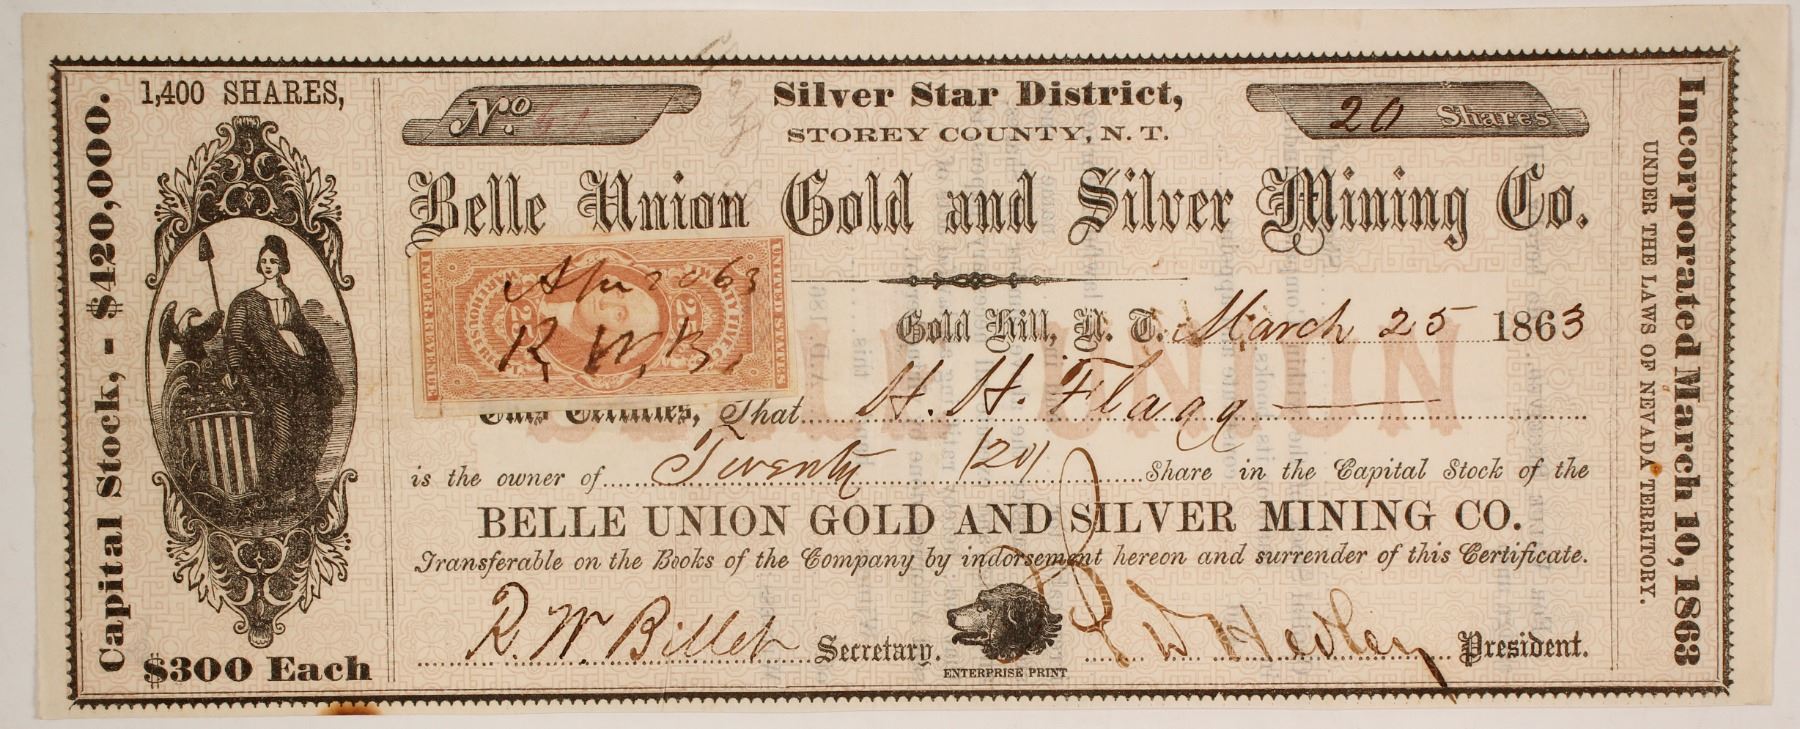 Capital Stock, - $420,000.
1,400 SHARES,
$300 Each
No.
Silver Star District,
STOREY COUNTY, N. T.
20 Shares
Belle Union Gold and Silver Mining Co.
UNITED STATES
INTER. REVENUE
25
25
Apr 20 63
R. W. B.
Gold Hill, N. T. March 25 1863
This Certifies, That H. H. Flagg
BELLE UNION
is the owner of Twenty (20) Share in the Capital Stock of the
BELLE UNION GOLD AND SILVER MINING CO.
Transferable on the Books of the Company by indorsement hereon and surrender of this Certificate.
R. W. Billet Secretary.
ENTERPRISE PRINT
President.
Incorporated March 10, 1863
UNDER THE LAWS OF NEVADA TERRITORY.